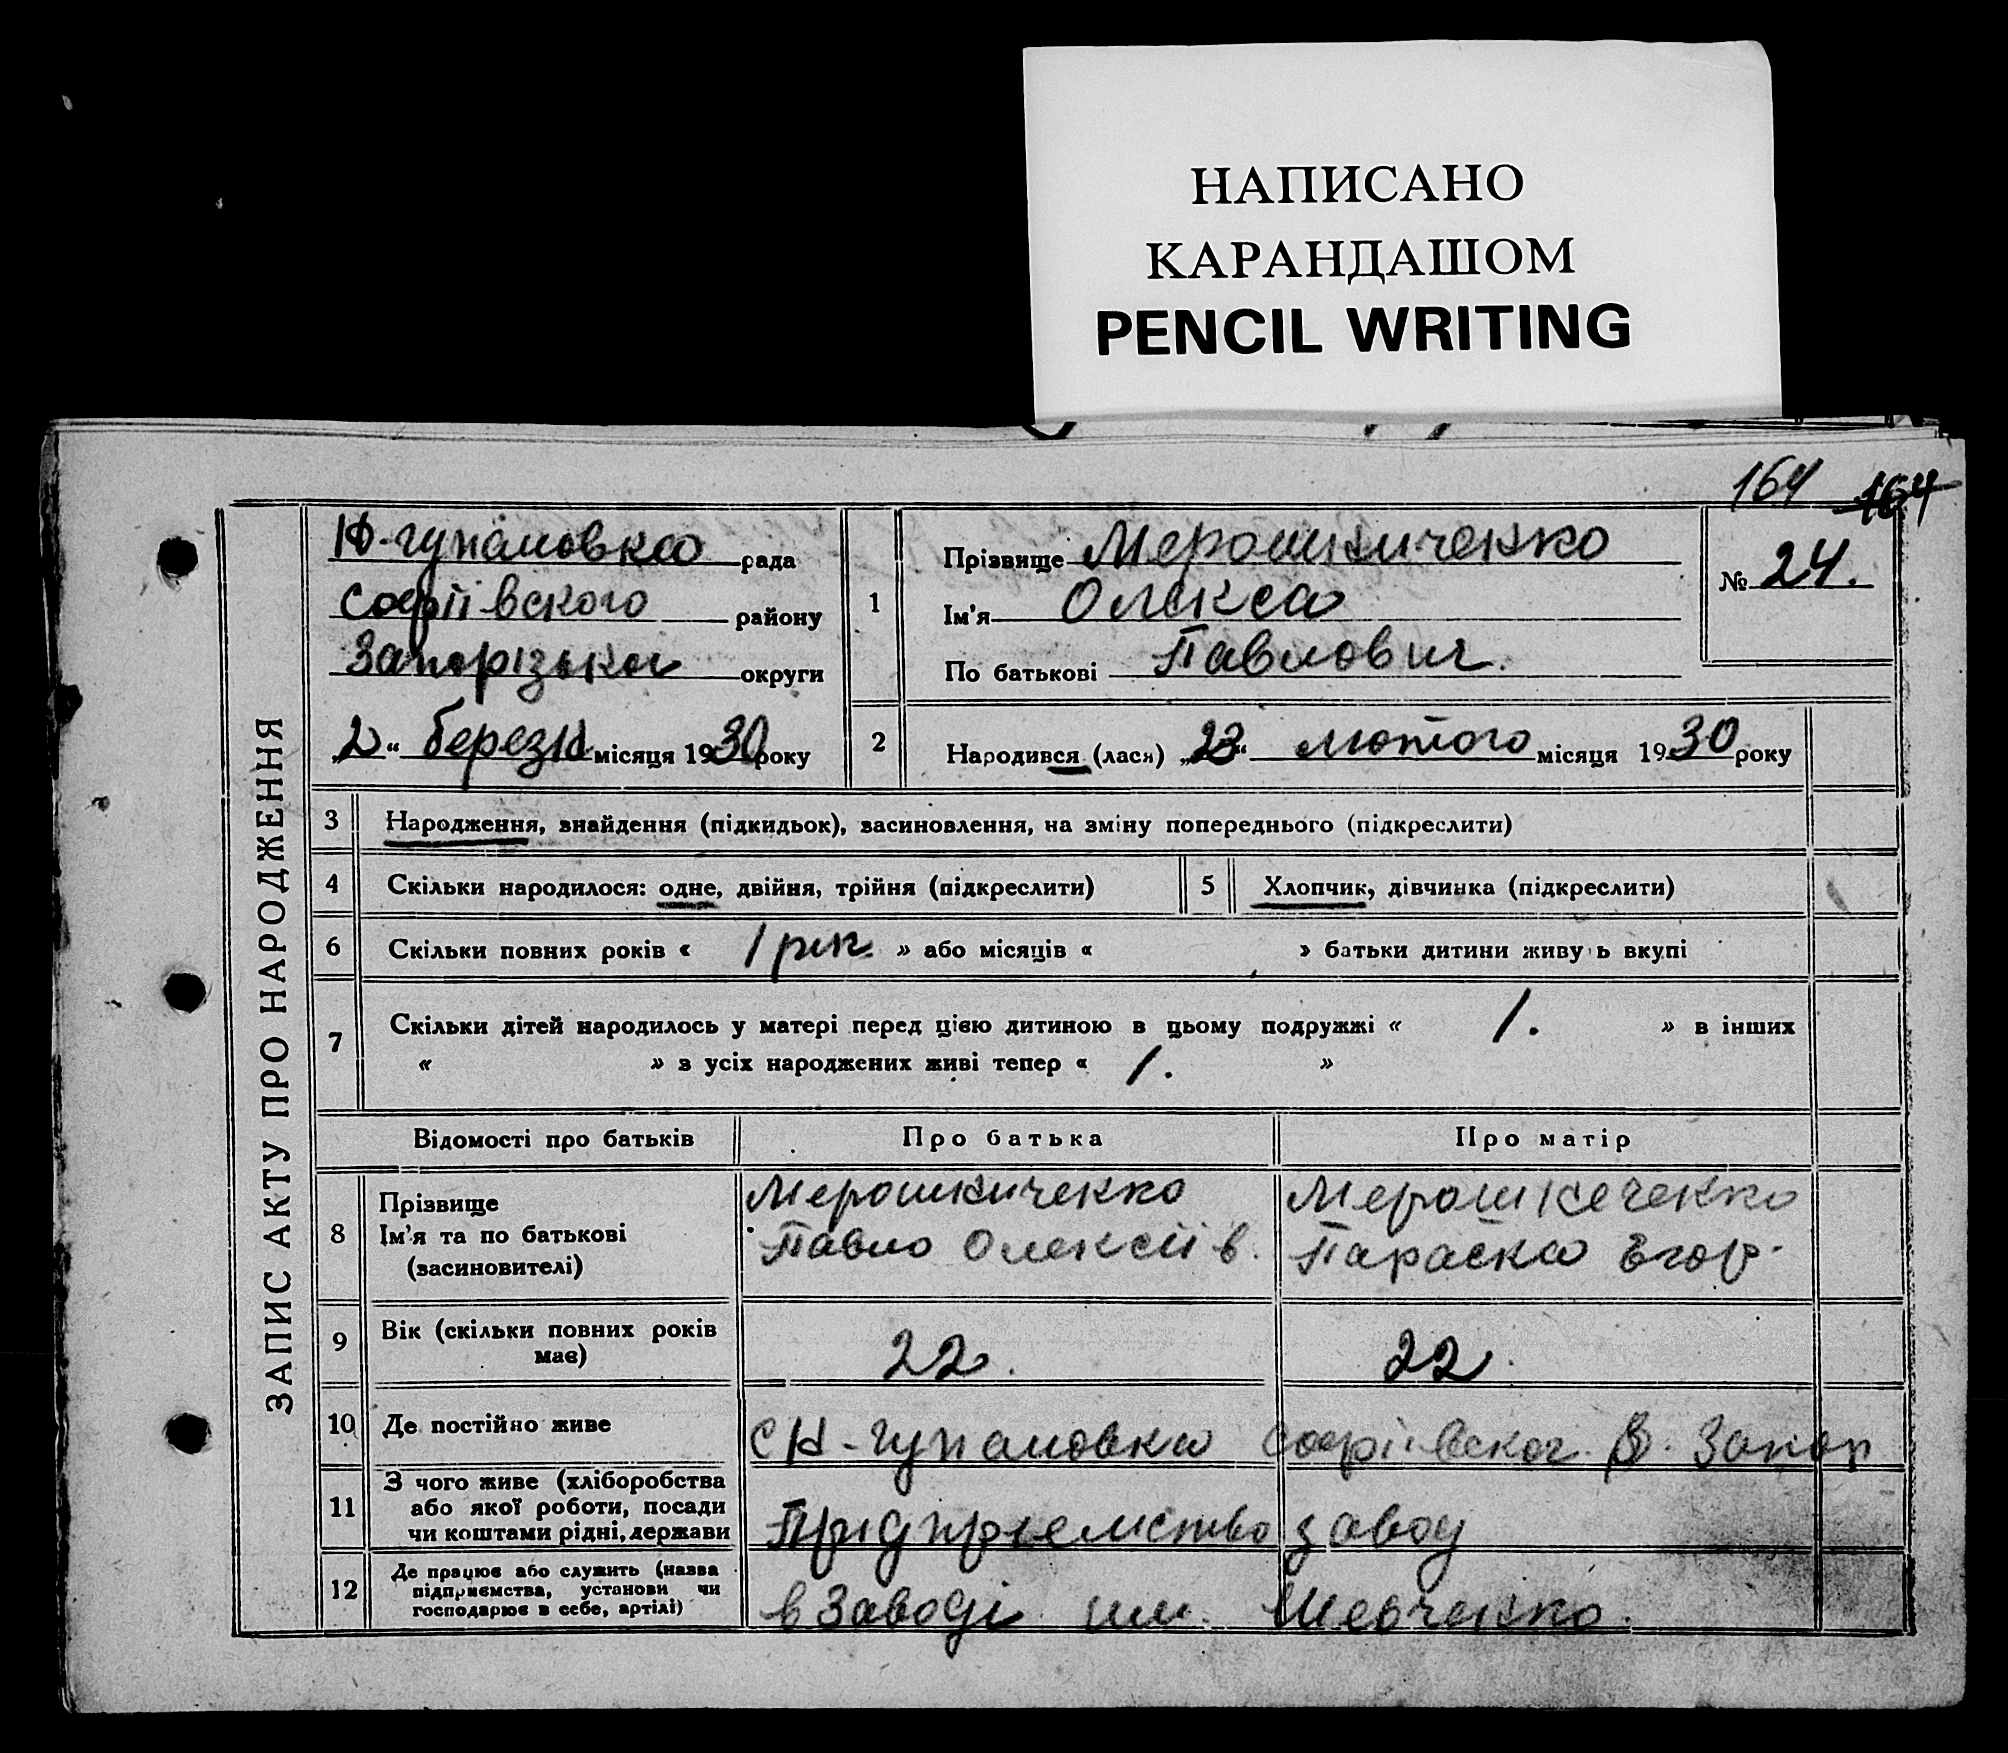 НАПИСАНО
КАРАНДАШОМ
PENCIL WRITING
164 164
ЗАПИС АКТУ ПРО НАРОДЖЕННЯ
Н-гупаловка рада
Софіівского району
Запорізька округи
„2“ березня місяця 1930 року
1
Прізвище Мерошниченко
Ім'я Олекса
По батькові Павлович.
№ 24.
2 Народився (лася) „23“ лютого місяця 1930 року
3 Народження, знайдення (підкидьок), засиновлення, на зміну попереднього (підкреслити)
4 Скільки народилося: одне, двійня, трійня (підкреслити) 5 Хлопчик, дівчинка (підкреслити)
6 Скільки повних років « 1 рік » або місяців « » батьки дитини живу ь вкупі
7 Скільки дітей народилось у матері перед цією дитиною в цьому подружжі « 1. » в інших
« » з усіх народжених живі тепер « 1. »
Відомості про батьків Про батька Про матір
8 Прізвище
Ім'я та по батькові
(засиновителі)
Мерошниченко
Павло Олексіів.
Мерошнеченко
Параска Егор.
9 Вік (скільки повних років
має)
22.
22.
10 Де постійно живе с Н-гупаловка Софіівског. Р. Запор
11 З чого живе (хліборобства
або якої роботи, посади
чи коштами рідні, держави
Придприемство завод
12 Де працює або служить (назва
підприємства, установи чи
господарює в себе, артілі)
в Заводі им. Шевченко.